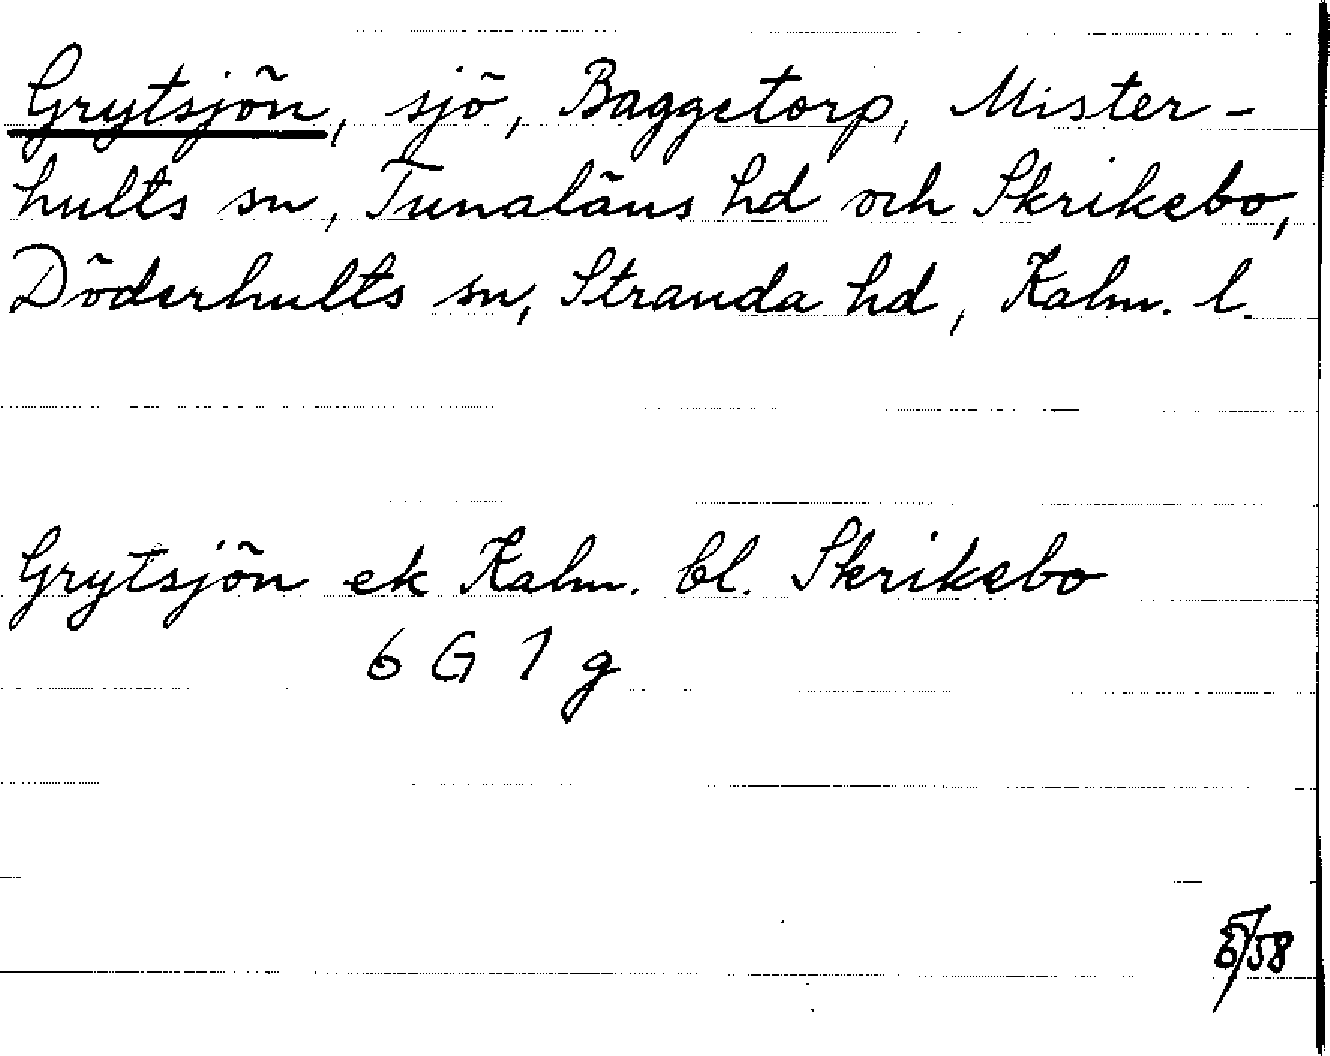 Grytsjön, sjö, Baggetorp, Mister-
hults sn, Tunaläns hd och Skrikebo,
Döderhults sn, Stranda hd, Kalm. l.
Grytsjön ek Kalm. bl. Skrikebo
6 G 1 g
/58